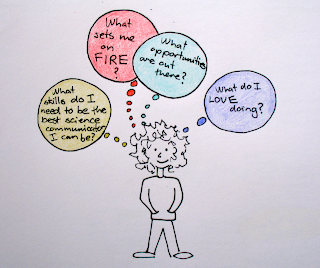 What
skills do I
need to be the
best science
communicator
I can be?
What
sets me
on
FIRE
?
What
opportunities
are out
there?
What do I
LOVE
doing?